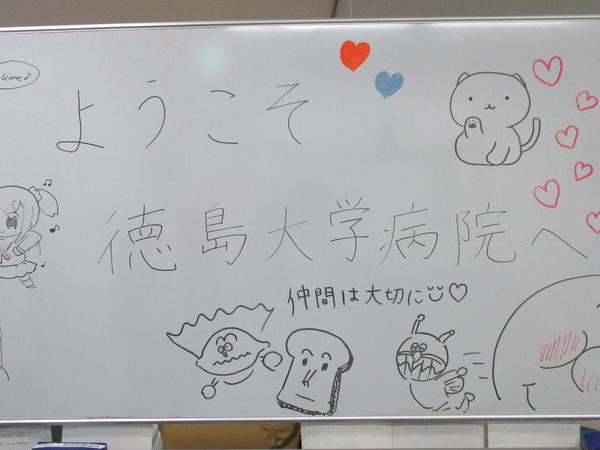 ようこそ
徳島大学病院へ
仲間は大切に